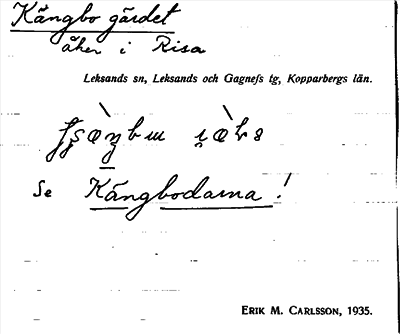 Kångbo gärdet
åker i Risa
Leksands sn, Leksands och Gagnefs tg, Kopparbergs län.
Se Kångbodarna!
ERIK M. CARLSSON, 1935.